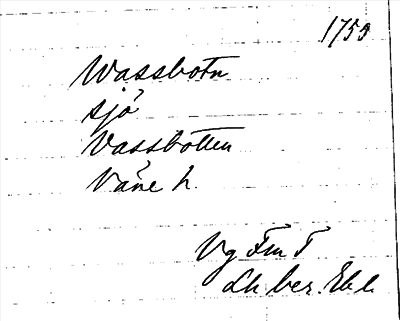 1750
Wassbotn
sjö
Vassbotten
Väne h.
Vg Fm T
Lk. ber.